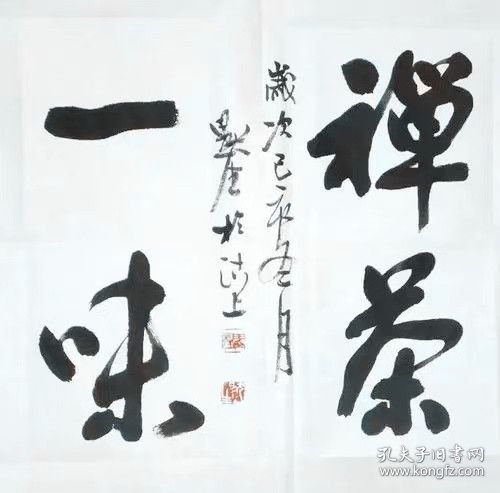 禅茶
一味
歲次己亥五月
於滬上
孔夫子旧书网
www.kongfz.com